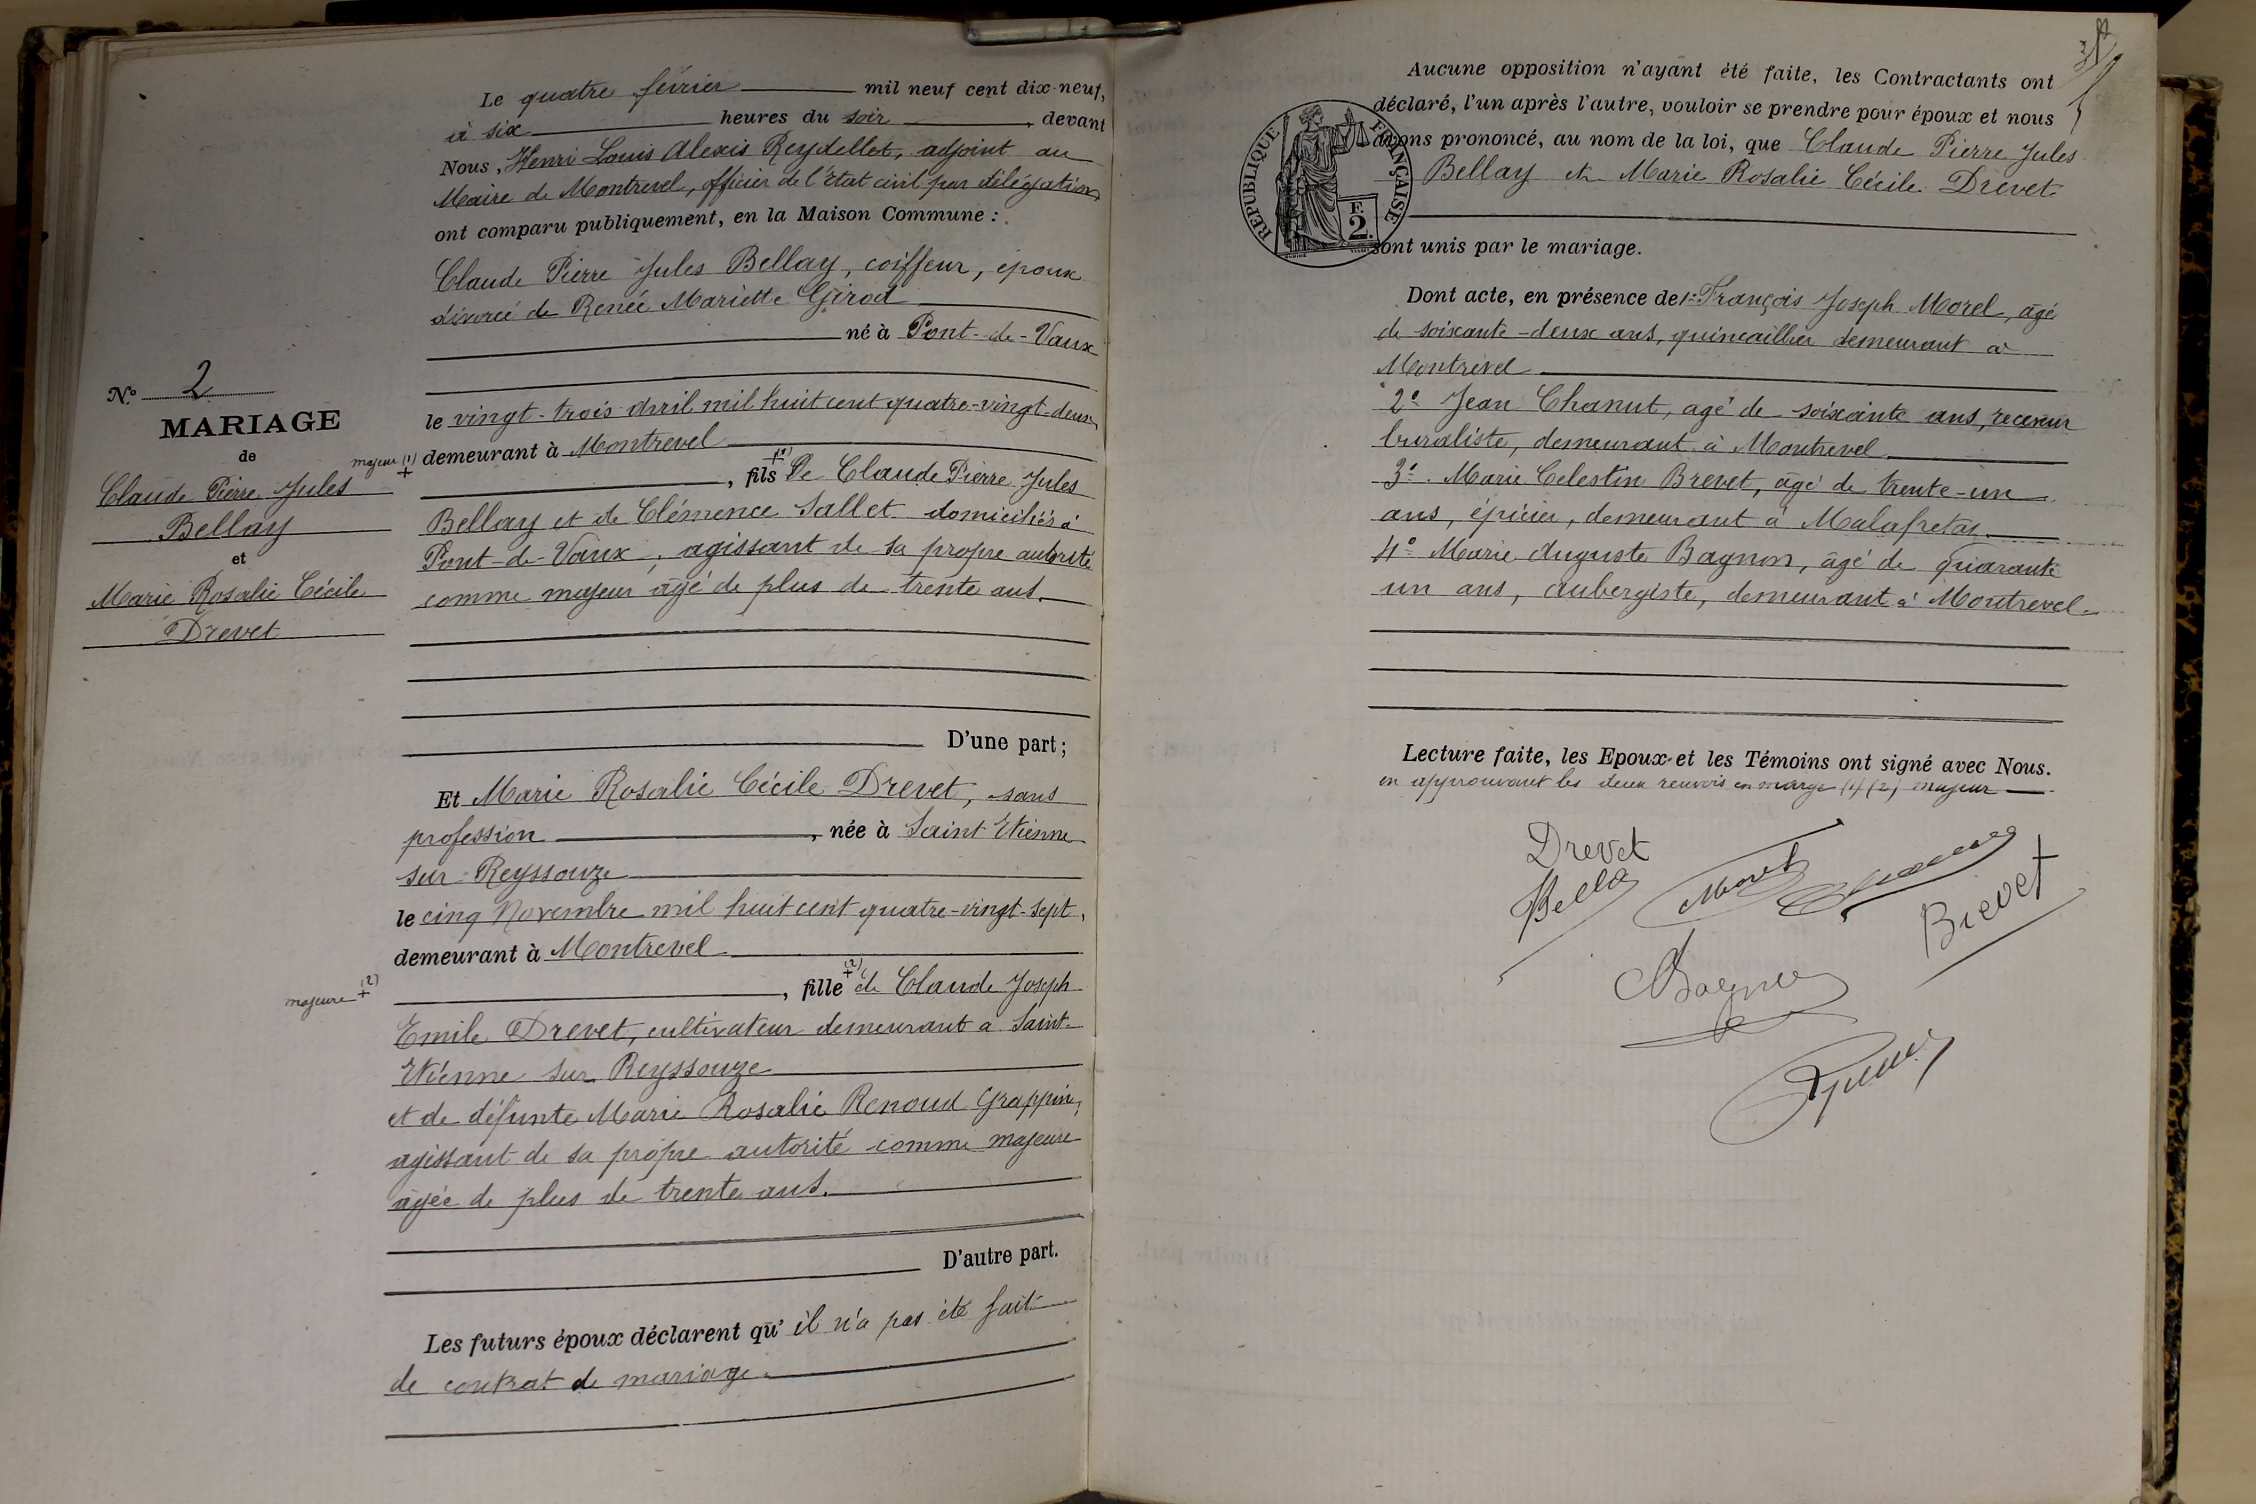 Le quatre février mil neuf cent dix-neuf,
à six heures du soir, devant
Nous, Henri Louis Alexis Reydellet, adjoint au
Maire de Montrevel, officier de l'état civil par délégation,
ont comparu publiquement, en la Maison Commune :
Claude Pierre Jules Bellay, coiffeur, époux
divorcé de Renée Mariette Girod
né à Pont-de-Vaux
le vingt-trois avril mil huit cent quatre-vingt-deux,
demeurant à Montrevel
, fils + (1) De Claude Pierre Jules
Bellay et de Clémence Sallet domiciliés à
Pont-de-Vaux, agissant de sa propre autorité
comme majeur âgé de plus de trente ans.
D'une part;
N° 2
MARIAGE
de
majeur (1) +
Claude Pierre Jules
Bellay
et
Marie Rosalie Cécile
Drevet
Et Marie Rosalie Cécile Drevet, sans
profession, née à Saint Etienne
sur Reyssouze
le cinq Novembre mil huit cent quatre-vingt-sept,
demeurant à Montrevel
majeure + (2)
, fille + (2) de Claude Joseph
Emile Drevet, cultivateur demeurant à Saint-
Etienne sur Reyssouze
et de défunte Marie Rosalie Renoud Grappin,
agissant de sa propre autorité comme majeure
âgée de plus de trente ans.
D'autre part.
Les futurs époux déclarent qu'il n'a pas été fait
de contrat de mariage.
Aucune opposition n'ayant été faite, les Contractants ont
déclaré, l'un après l'autre, vouloir se prendre pour époux et nous
avons prononcé, au nom de la loi, que Claude Pierre Jules
Bellay et Marie Rosalie Cécile Drevet
sont unis par le mariage.
REPUBLIQUE FRANÇAISE
F.
2.
Dont acte, en présence de 1° François Joseph Morel, âgé
de soixante-deux ans, quincaillier demeurant à
Montrevel
2° Jean Chanut, âgé de soixante ans, receveur
buraliste, demeurant à Montrevel
3° Marie Celestin Brevet, âgé de trente-un
ans, épicier, demeurant à Malafretaz
4° Marie Auguste Bagnon, âgé de quarante
un ans, aubergiste, demeurant à Montrevel.
Lecture faite, les Epoux et les Témoins ont signé avec Nous.
en approuvant les deux renvois en marge (1) (2) majeur
Drevet
Bellay
Morel
Brevet